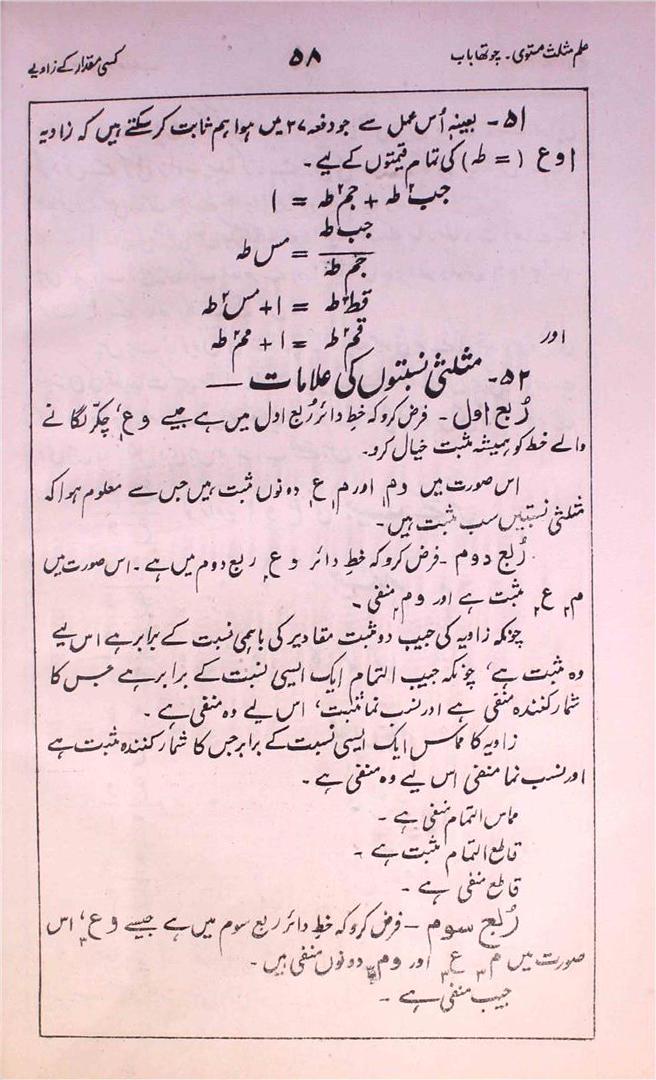 علم مثلث مستوی۔ چوتھا باب ۵۸ کسی مقدار کے زاویے
۵۱۔ بعینہٖ اُس عمل سے جو دفعہ ۲۷ میں ہوا ہم ثابت کر سکتے ہیں کہ زاویہ
ا و ع ( = طہ) کی تمام قیمتوں کے لیے۔
جب۲ طہ + جم۲ طہ = ۱
جب طہ / جم طہ = مس طہ
قط۲ طہ = ۱ + مس۲ طہ
اور قم۲ طہ = ۱ + مم۲ طہ
۵۲۔ مثلثی نسبتوں کی علامات —
رُبع اول۔ فرض کرو کہ خطِ دائر رُبع اول میں ہے جیسے و ع۱، چکر لگانے
والے خط کو ہمیشہ مثبت خیال کرو۔
اس صورت میں و م۱ اور م۱ ع۱ دونوں مثبت ہیں جس سے معلوم ہوا کہ
مثلثی نسبتیں سب مثبت ہیں۔
رُبع دوم۔ فرض کرو کہ خطِ دائر و ع۲ ربع دوم میں ہے۔ اس صورت میں
م۲ ع۲ مثبت ہے اور و م۲ منفی۔
چونکہ زاویہ کی جیب دو مثبت مقادیر کی باہمی نسبت کے برابر ہے اس لیے
وہ مثبت ہے، چونکہ جیب التمام ایک ایسی نسبت کے برابر ہے جس کا
شمار کنندہ منفی ہے اور نسب نما مثبت، اس لیے وہ منفی ہے۔
زاویہ کا مماس ایک ایسی نسبت کے برابر جس کا شمار کنندہ مثبت ہے
اور نسب نما منفی اس لیے وہ منفی ہے۔
مماس التمام منفی ہے۔
قاطع التمام مثبت ہے۔
قاطع منفی ہے۔
رُبع سوم۔ فرض کرو کہ خطِ دائر ربع سوم میں ہے جیسے و ع۳، اس
صورت میں م۳ ع۳ اور و م۳ دونوں منفی ہیں۔
جیب منفی ہے۔